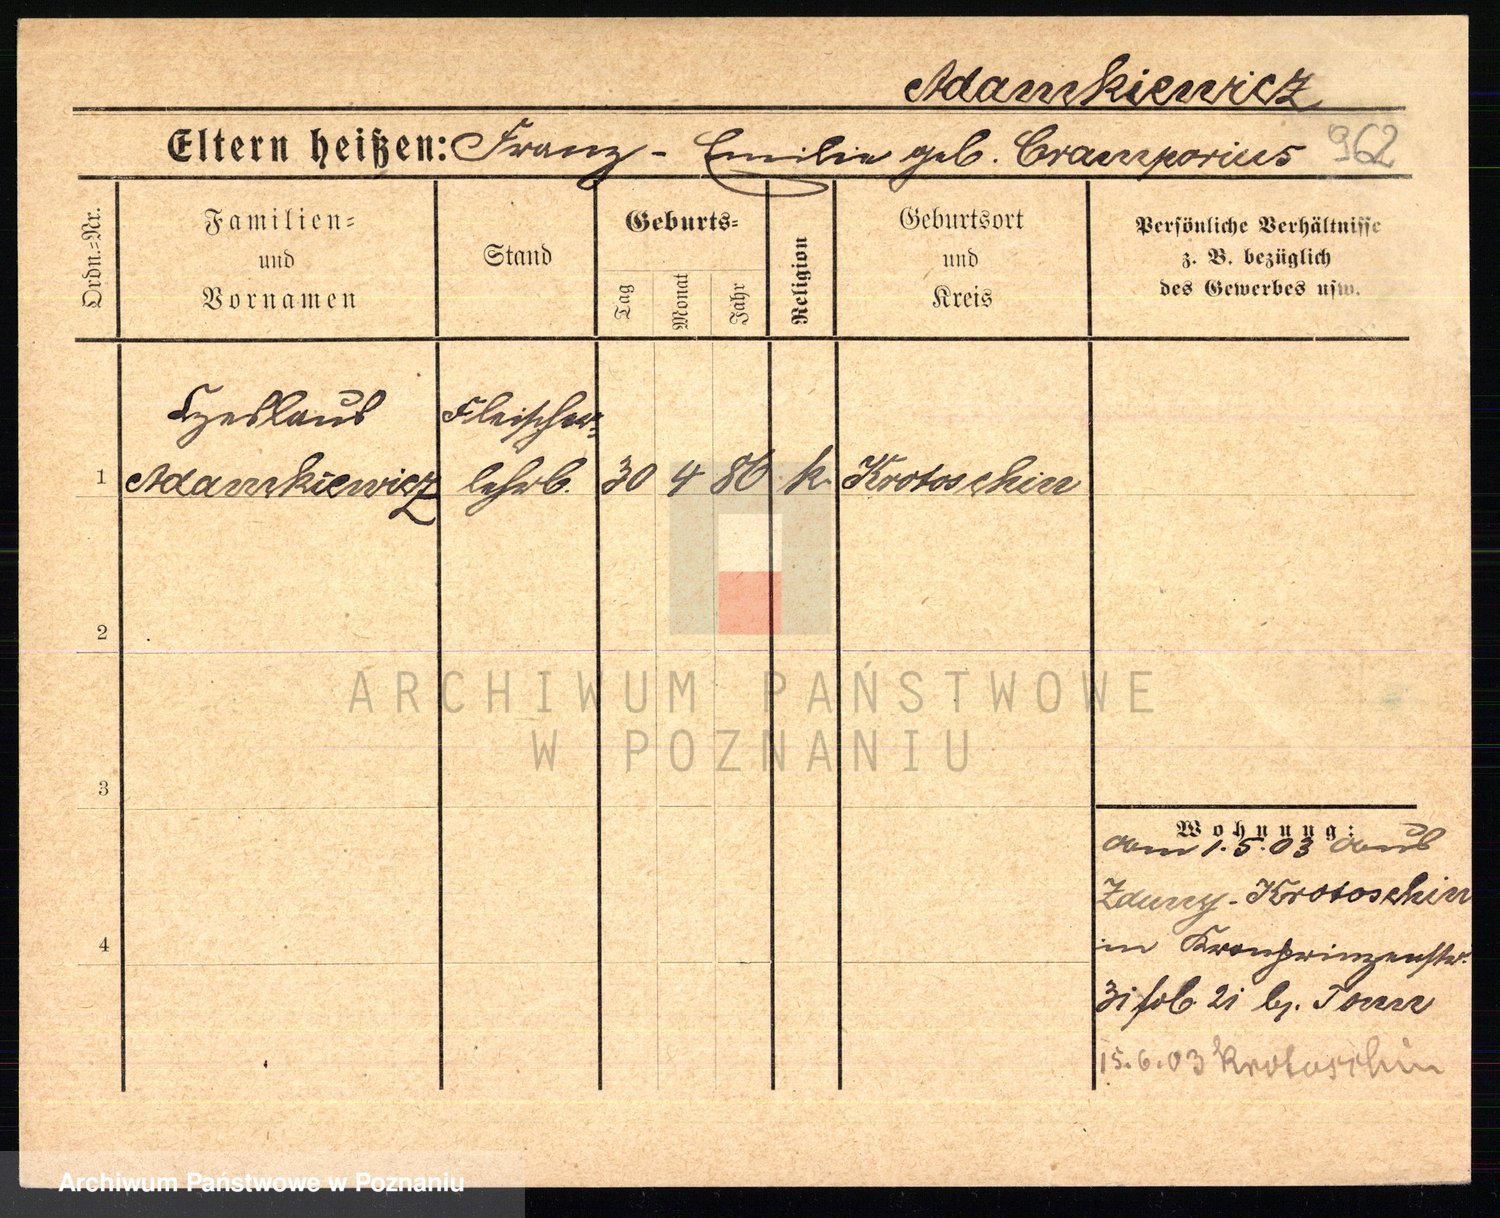 Adamkiewicz
Eltern heißen: Franz - Emilie geb. Cramporius 962
Ordn.=Nr.
Familien=
und
Vornamen
Stand
Geburts=
Tag
Monat
Jahr
Religion
Geburtsort
und
Kreis
Persönliche Verhältnisse
z. B. bezüglich
des Gewerbes usw.
Czeslaus Fleischer=
1 Adamkiewicz lehrl. 30 4 86 k. Krotoschin
2
3
4
Wohnung:
am 1.5.03 aus
Zduny - Krotoschin
in Kronprinzenstr.
15.6.03 Krotoschin
ARCHIWUM PAŃSTWOWE
W POZNANIU
Archiwum Państwowe w Poznaniu